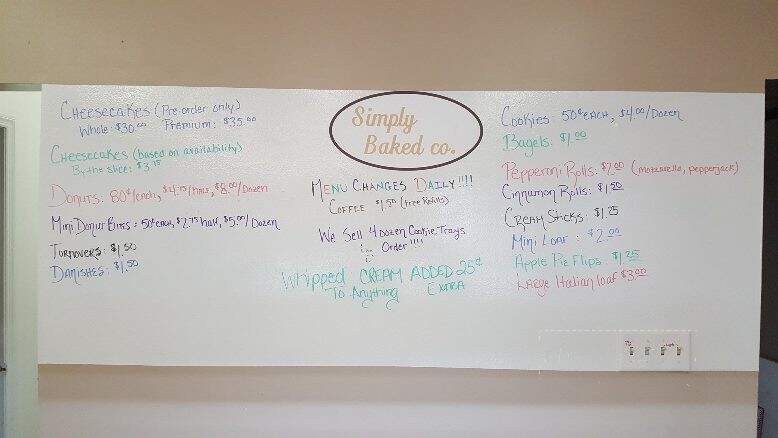 Cheesecakes (Pre-order only)
Whole: $30.00 Premium: $35.00
Cheesecakes (based on availability)
By the slice: $3.75
Donuts: 80¢/each, $4.75/half, $8.00/Dozen
Mini Donut Bites: 50¢ each, $2.75 half, $5.00/Dozen
Turnovers: $1.50
Danishes: $1.50
Simply
Baked co.
Menu Changes Daily!!!!
Coffee $1.50 (free Refills)
We Sell 4 Dozen Cookie Trays
Order!!!!
Whipped CREAM ADDED 25¢
To Anything Extra
Cookies 50¢ each, $4.00/Dozen
Bagels: $1.00
Pepperoni Rolls: $2.00 (mozzarella, pepperjack)
Cinnamon Rolls: $1.50
Cream Sticks: $1.25
Mini Loaf: $2.00
Apple Pie Flips $1.25
Large Italian loaf $3.00